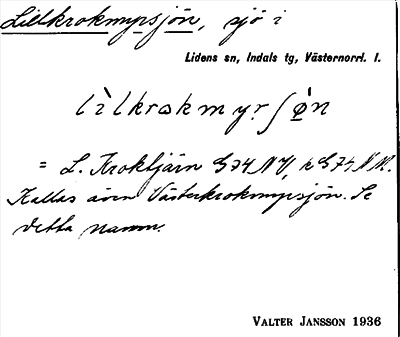 Lillkrokmyrsjön, sjö i
Lidens sn, Indals tg, Västernorrl. l.
lìlkrokmyrʃø̀n
= L. Kroktjärn G74 NV, k G74 NM.
Kallas även Västerkrokmyrsjön. Se
detta namn.
VALTER JANSSON 1936